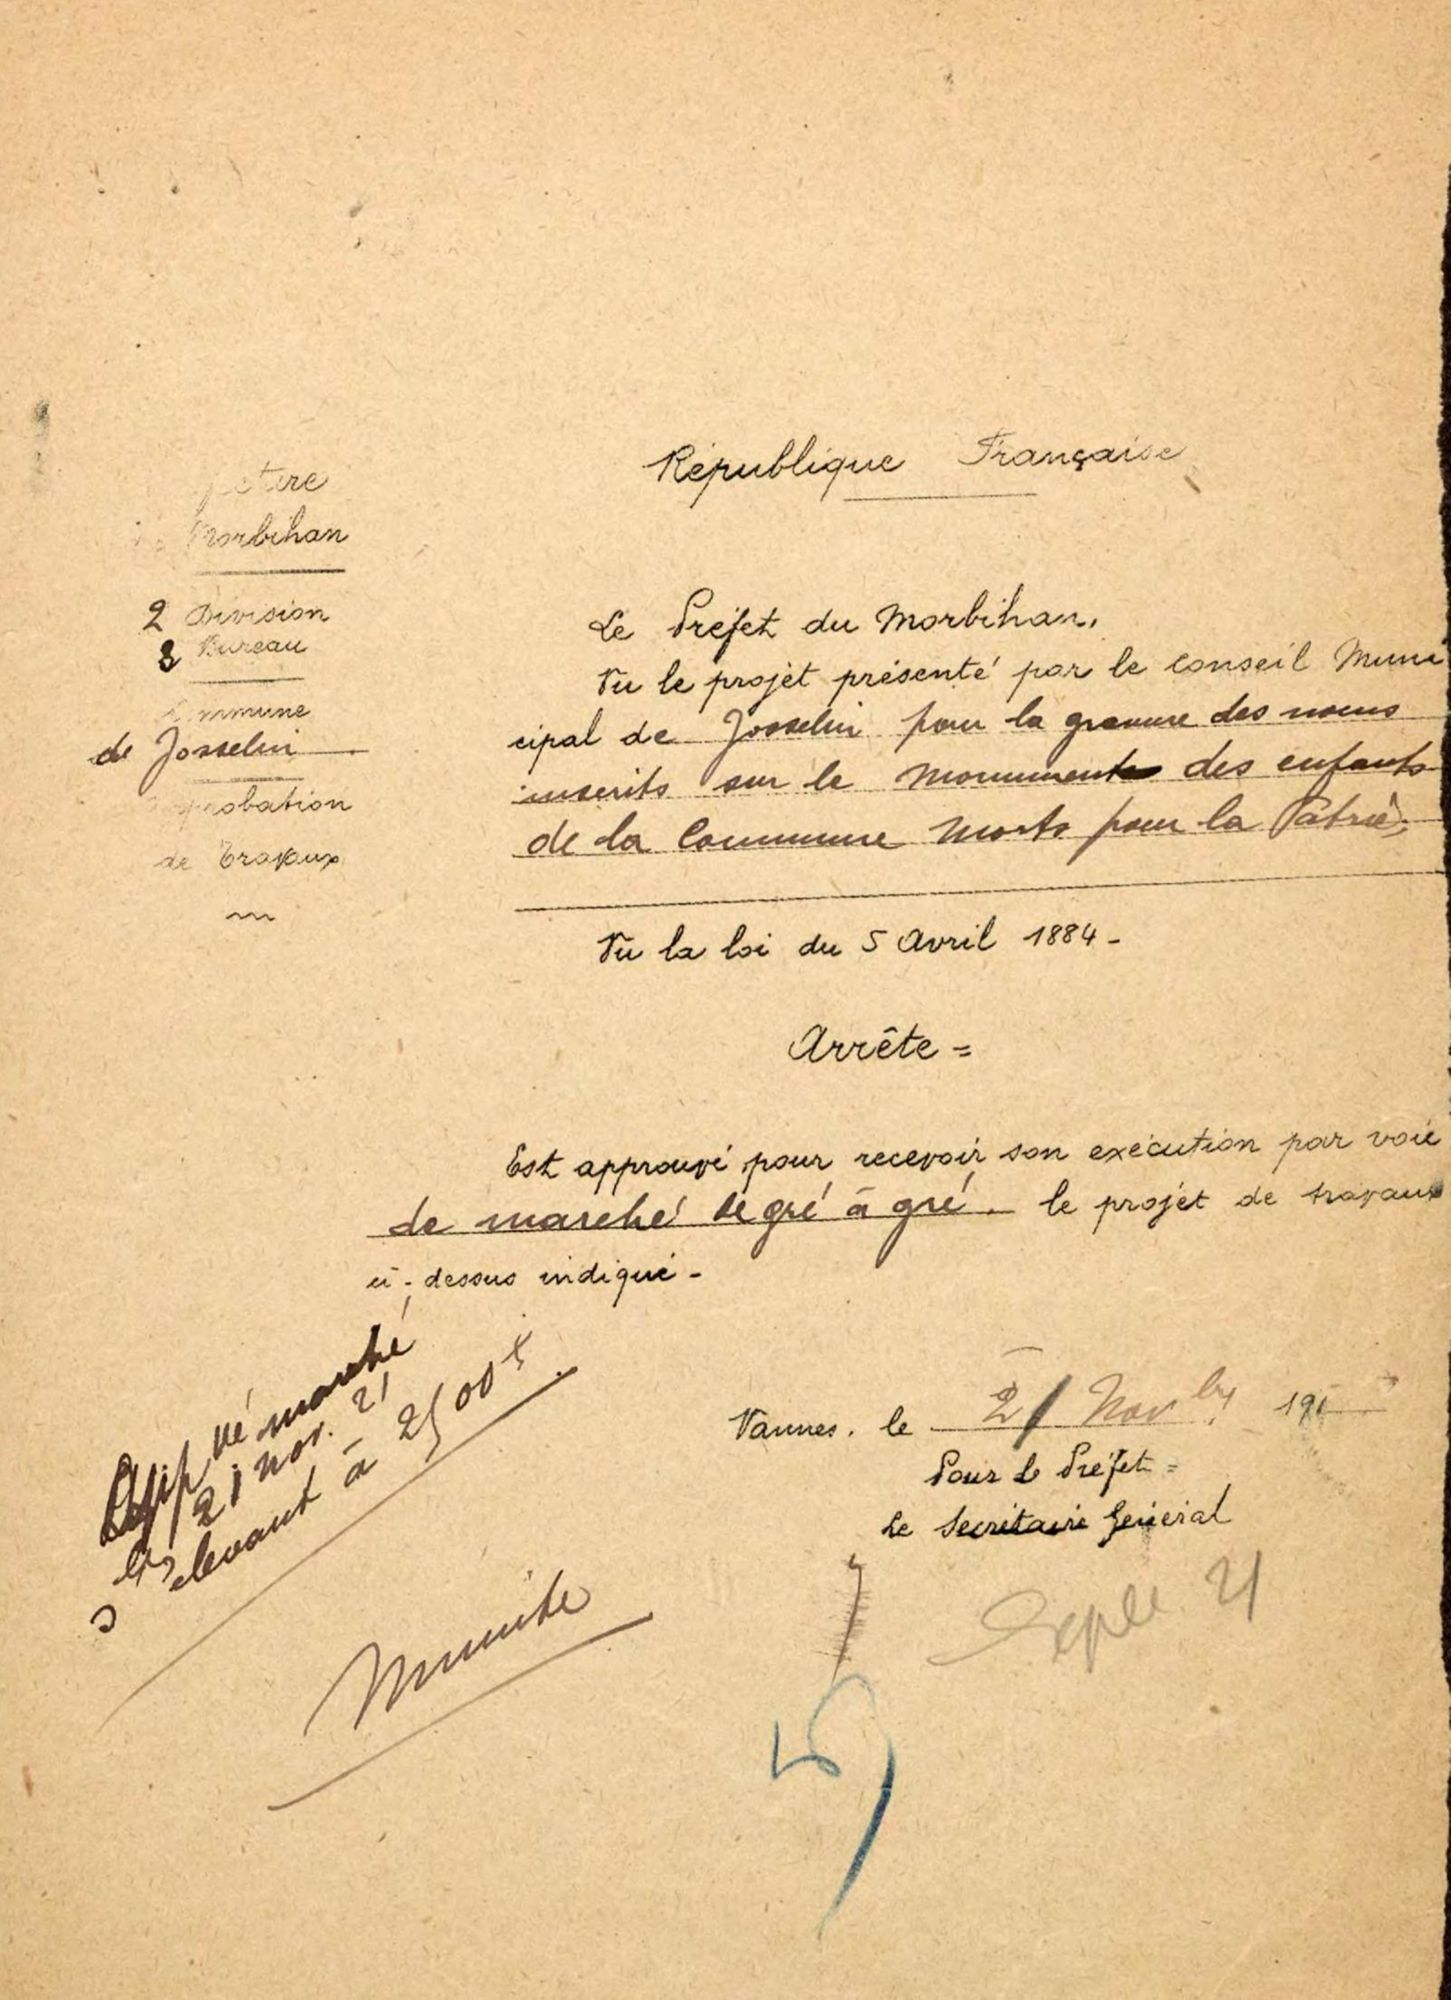 République Française
Morbihan
2 Division
3 Bureau
Commune
de Josselin
Approbation
de Travaux
Le Préfet du Morbihan,
Vu le projet présenté par le Conseil Muni
cipal de Josselin pour la gravure des noms
inscrits sur le Monument des enfants
de la Commune Morts pour la Patrie,
Vu la loi du 5 Avril 1884 -
Arrête =
Est approuvé pour recevoir son exécution par voie
de marché de gré à gré. le projet de travaux
ci-dessus indiqué -
marché
21 nov. 21
s'élevant à 2500 f
Vannes, le 21 Novbre 19
Pour le Préfet =
Le Secrétaire Général
Minute
21